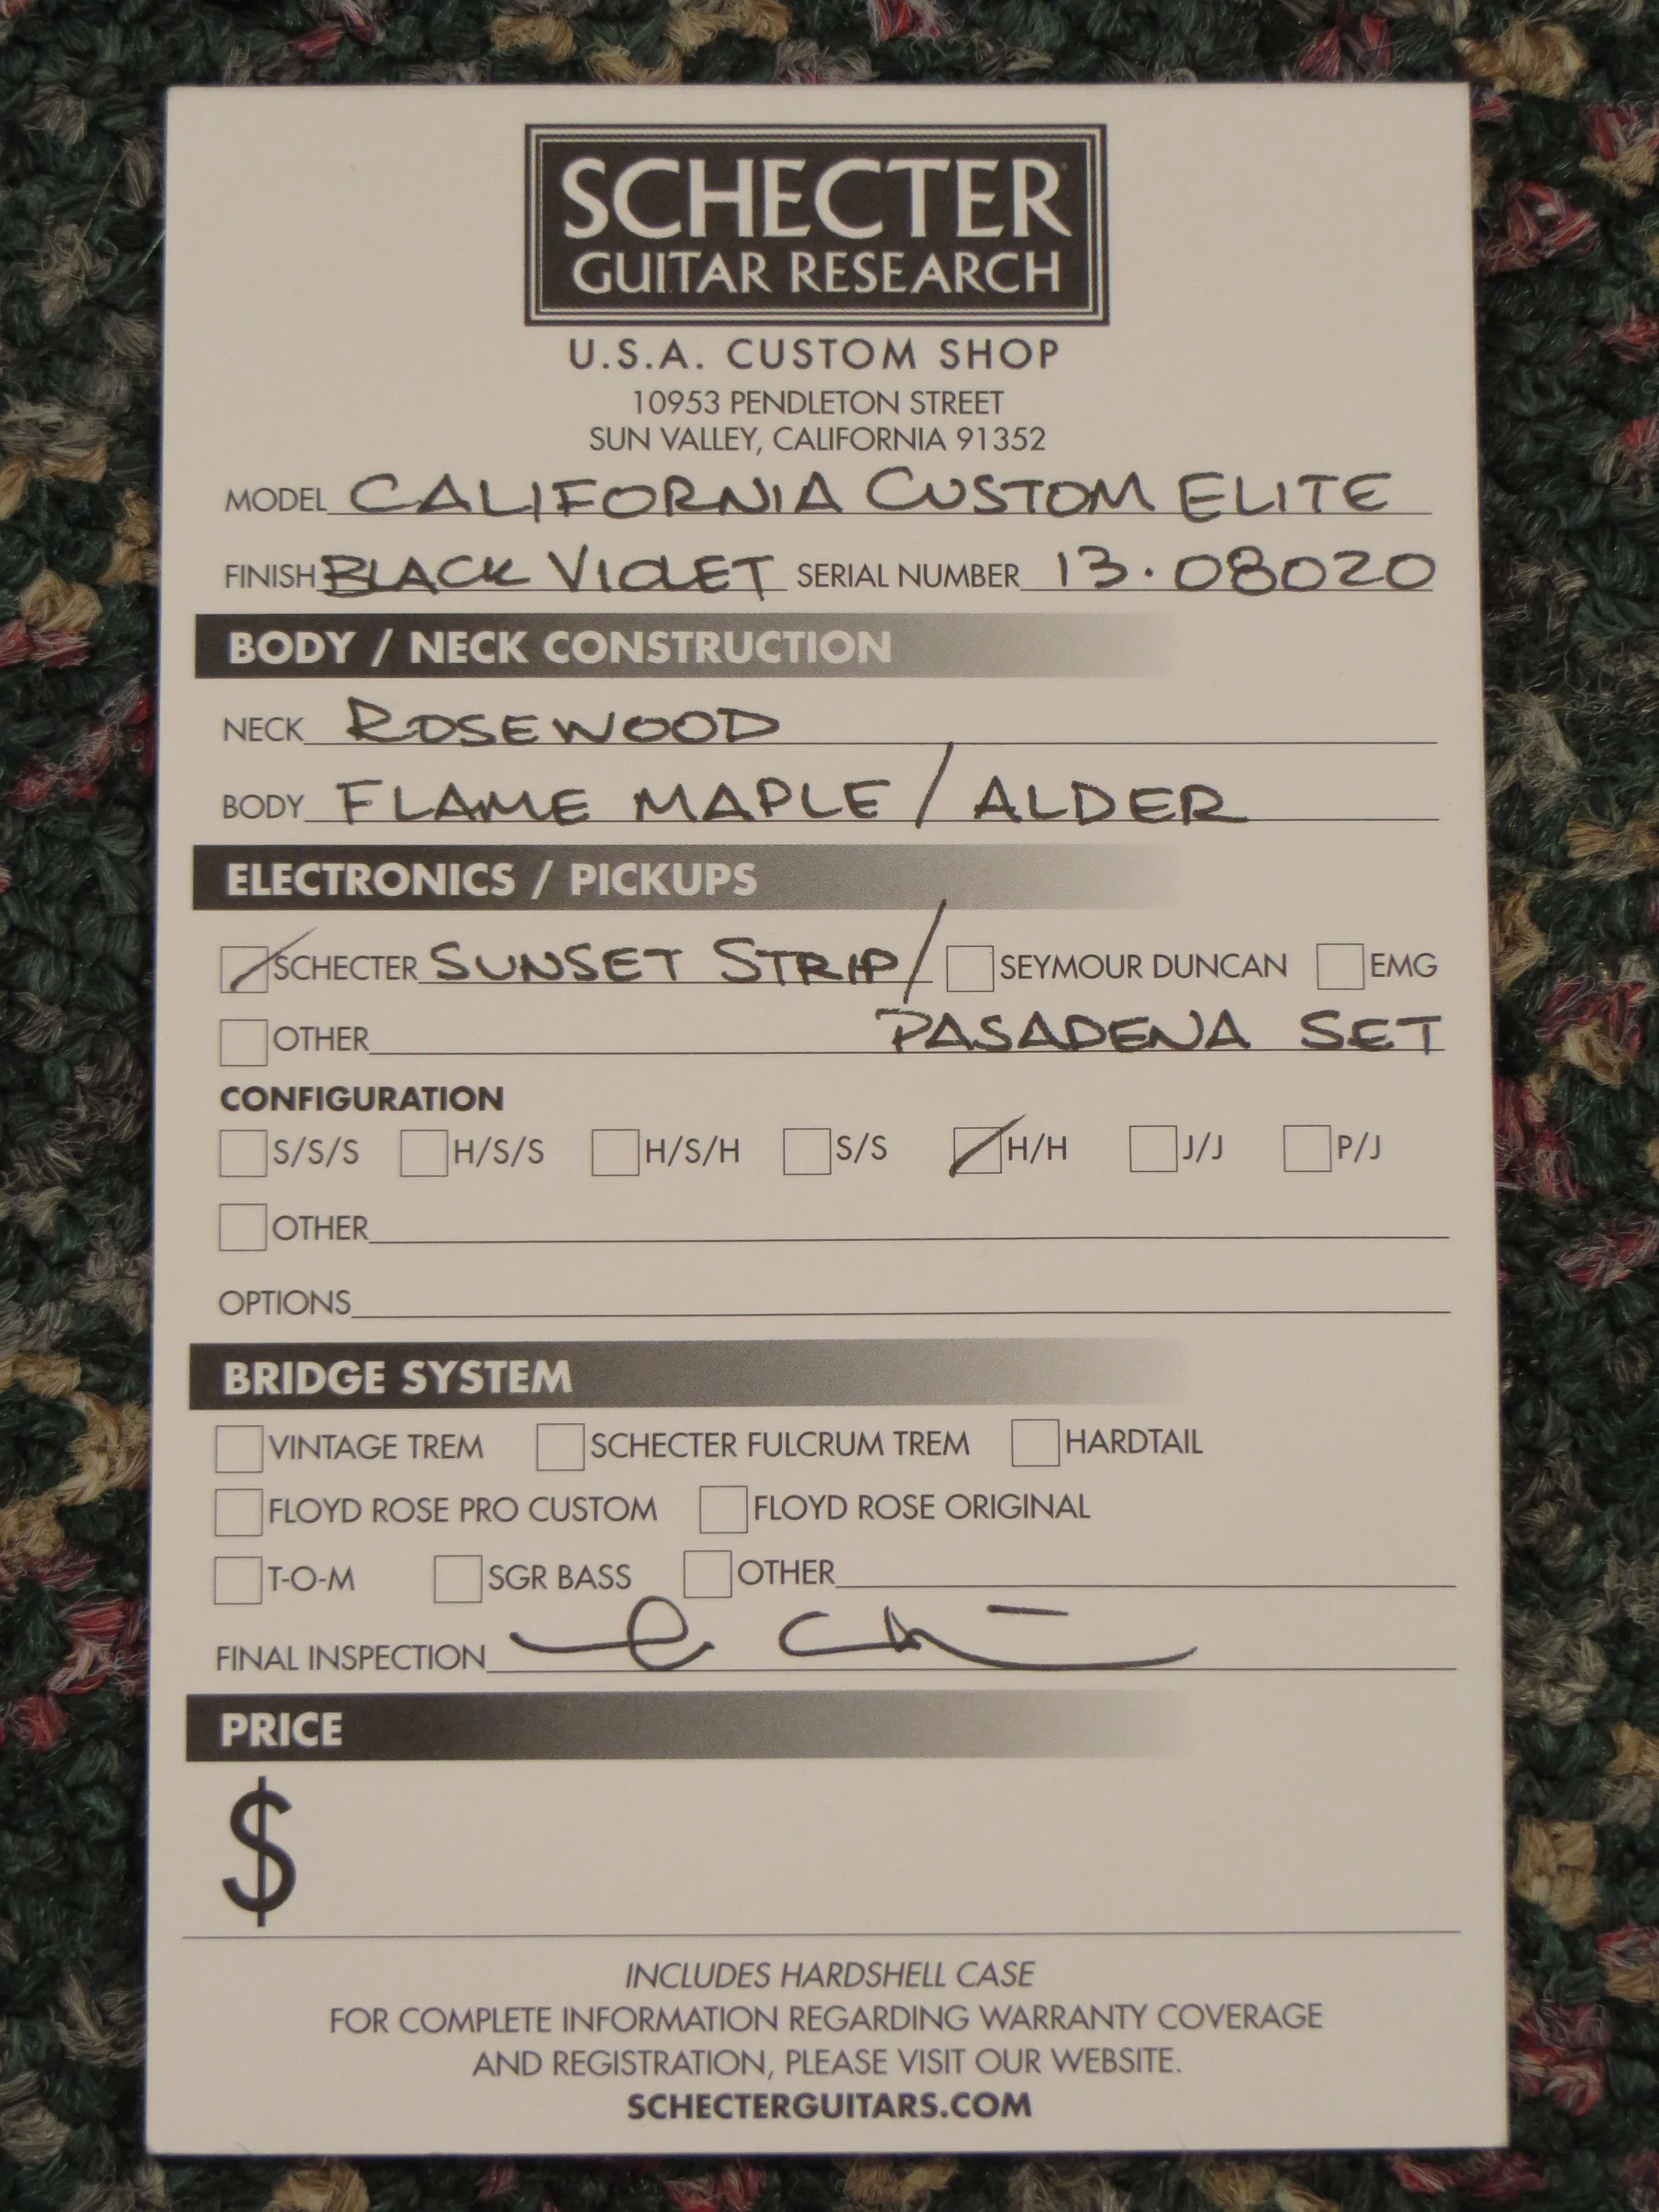 SCHECTER
GUITAR RESEARCH
U.S.A. CUSTOM SHOP
10953 PENDLETON STREET
SUN VALLEY, CALIFORNIA 91352
MODEL CALIFORNIA CUSTOM ELITE
FINISH BLACK VIOLET SERIAL NUMBER 13·08020
BODY / NECK CONSTRUCTION
NECK ROSEWOOD
BODY FLAME MAPLE / ALDER
ELECTRONICS / PICKUPS
SCHECTER SUNSET STRIP / SEYMOUR DUNCAN EMG
OTHER PASADENA SET
CONFIGURATION
S/S/S H/S/S H/S/H S/S H/H J/J P/J
OTHER
OPTIONS
BRIDGE SYSTEM
VINTAGE TREM SCHECTER FULCRUM TREM HARDTAIL
FLOYD ROSE PRO CUSTOM FLOYD ROSE ORIGINAL
T-O-M SGR BASS OTHER
FINAL INSPECTION
PRICE
$
INCLUDES HARDSHELL CASE
FOR COMPLETE INFORMATION REGARDING WARRANTY COVERAGE
AND REGISTRATION, PLEASE VISIT OUR WEBSITE.
SCHECTERGUITARS.COM